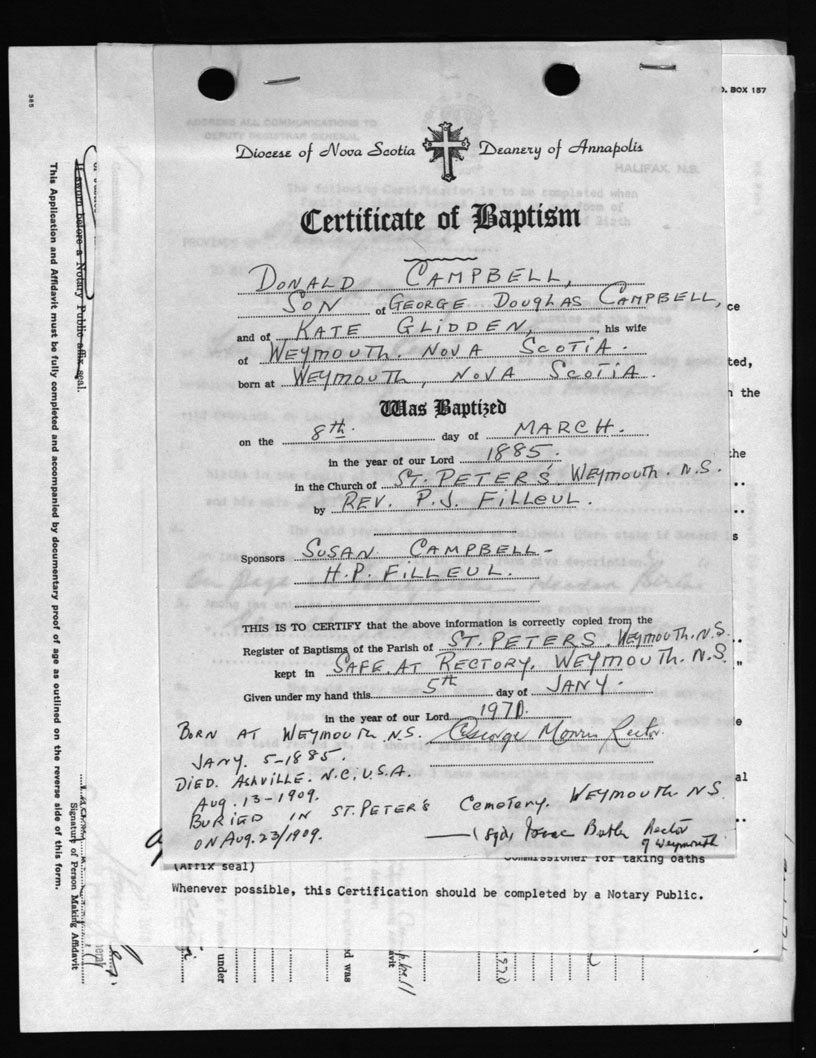 P.O. BOX 157
Diocese of Nova Scotia Deanery of Annapolis
HALIFAX, N.S.
Certificate of Baptism
DONALD CAMPBELL,
SON of GEORGE DOUGLAS CAMPBELL,
and of KATE GLIDDEN, his wife
of WEYMOUTH. NOVA SCOTIA.
born at WEYMOUTH, NOVA SCOTIA.
Was Baptized
on the 8th. day of MARCH.
in the year of our Lord 1885.
in the Church of ST. PETER'S WEYMOUTH. N.S.
by REV. P.J. FILLEUL.
Sponsors SUSAN CAMPBELL -
H.P. FILLEUL.
THIS IS TO CERTIFY that the above information is correctly copied from the
Register of Baptisms of the Parish of ST. PETERS. WEYMOUTH. N.S.
kept in SAFE. AT RECTORY. WEYMOUTH. N.S.
Given under my hand this 5th day of JANY.
in the year of our Lord 1970.
George Morris Rector.
BORN AT WEYMOUTH N.S.
JANY. 5-1885.
DIED. ASHVILLE. N.C. U.S.A.
AUG. 13-1909.
BURIED IN ST. PETER'S CEMETERY. WEYMOUTH NS
ON AUG. 23/1909.
(sgd) Isaac Butler Rector
of Weymouth
(Affix seal)
Commissioner for taking oaths
Whenever possible, this Certification should be completed by a Notary Public.
If sworn before a Notary Public affix seal.
This Application and Affidavit must be fully completed and accompanied by documentary proof of age as outlined on the reverse side of this form.
Signature of Person Making Affidavit
under
d was